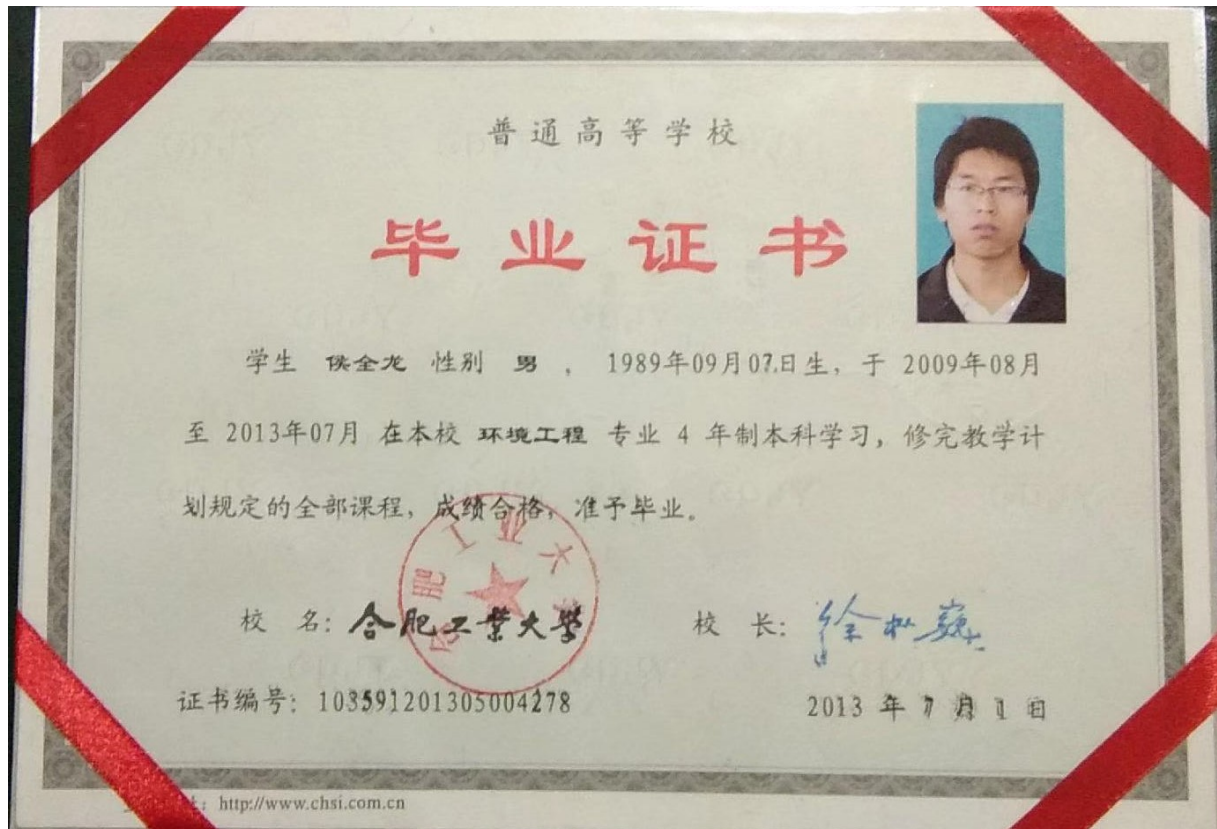 普通高等学校
毕业证书
学生 侯全龙 性别 男 ， 1989年09月07日生，于 2009年08月
至 2013年07月 在本校 环境工程 专业 4 年制本科学习，修完教学计
划规定的全部课程，成绩合格，准予毕业。
合肥工业大学
校 名：合肥工業大學
校 长：徐枞巍
证书编号：103591201305004278
2013 年 7 月 1 日
址：http://www.chsi.com.cn